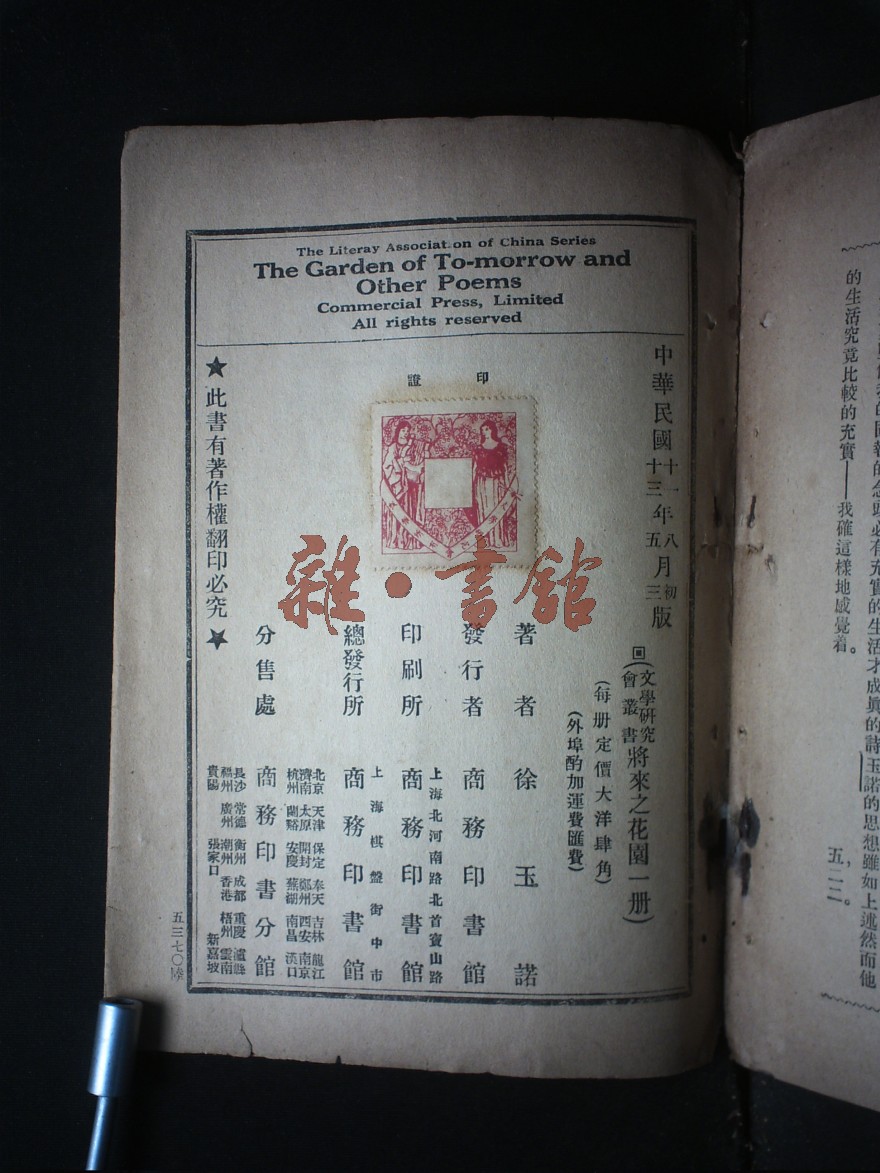 The Literay Associat.on of China Series
The Garden of To-morrow and
Other Poems
Commercial Press, Limited
All rights reserved
中華民國十一年八月初版
十三年五月三版
印證
回(文學研究會叢書將來之花園一册)
(每册定價大洋肆角)
(外埠酌加運費匯費)
著者 徐玉諾
發行者 商務印書館
上海北河南路北首寶山路
印刷所 商務印書館
上海棋盤街中市
總發行所 商務印書館
北京 天津 保定 奉天 吉林 龍江
濟南 太原 開封 鄭州 西安 南京
杭州 蘭谿 安慶 蕪湖 南昌 漢口
分售處 商務印書分館
長沙 常德 衡州 成都 重慶 瀘縣
福州 廣州 潮州 香港 梧州 雲南
貴陽 張家口 新嘉坡
★此書有著作權翻印必究★
五三七〇陸
雜·書館
的念頭必有充實的生活才成眞的詩玉諾的思想雖如上述然而他
的生活究竟比較的充實——我確這樣地感覺着。
五,二二。